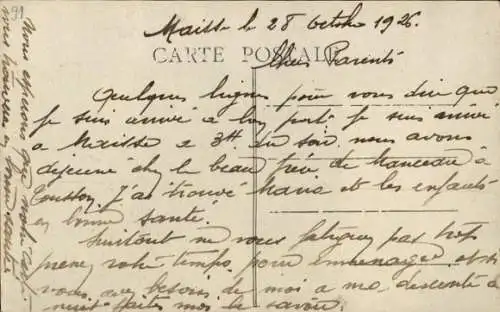 Maisse le 28 Octobre 1926.
CARTE POSTALE
Chers Parents
Quelques lignes pour vous dire que
je suis arrivé à bon port. Je suis arrivé
a Maisse a 3H du soir. nous avons
déjeuné chez le beau frère de Manceau à
Tousson. J'ai trouvé et les enfants
en bonne santé.
Surtout ne vous fatiguez pas trop
prenez votre temps pour emménager et si
vous avez besoin de moi a ma descente de
nuit faites moi le savoir.
Nous espérons que votre
vous trouvera en bonne santé
91